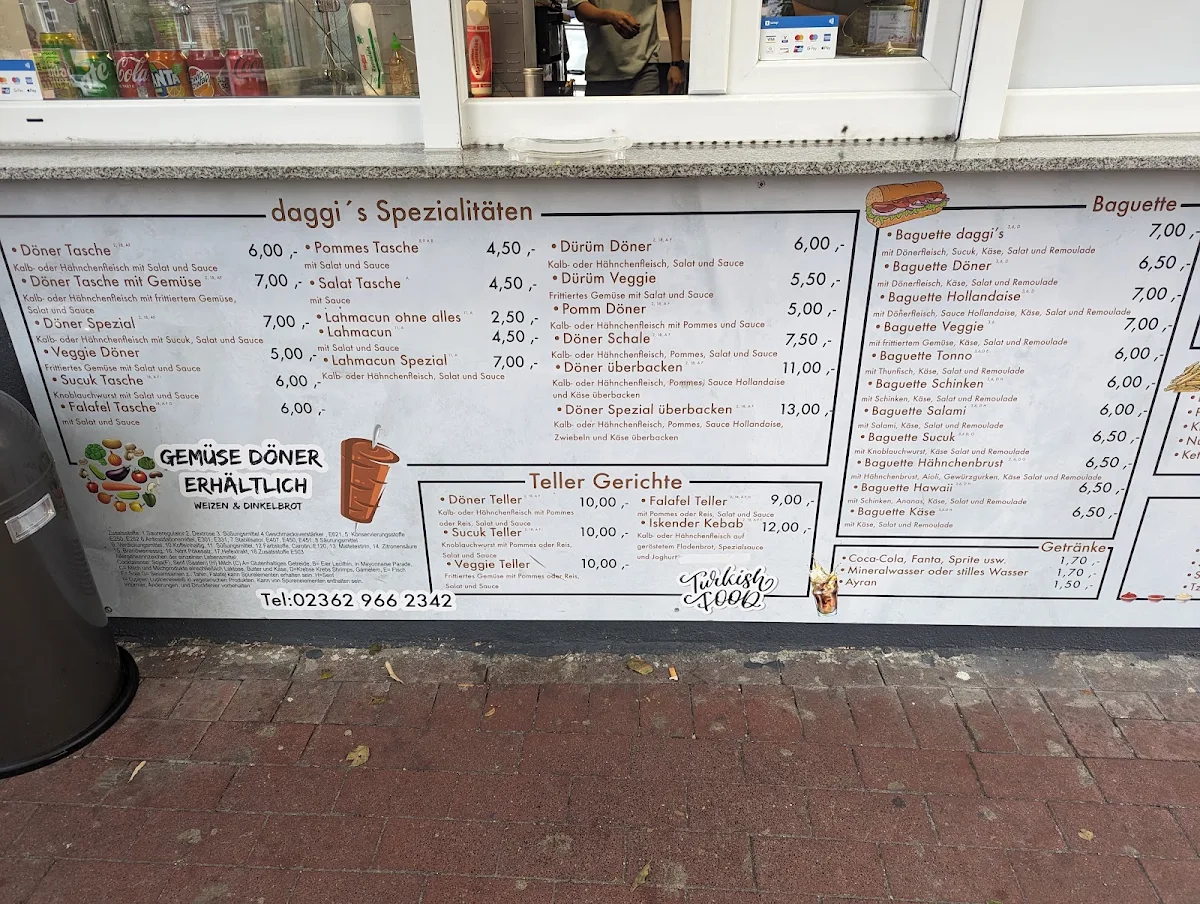 Coca-Cola
FANTA
daggi´s Spezialitäten
• Döner Tasche 6,00 ,-
Kalb- oder Hähnchenfleisch mit Salat und Sauce
• Döner Tasche mit Gemüse 7,00 ,-
Kalb- oder Hähnchenfleisch mit frittiertem Gemüse,
Salat und Sauce
• Döner Spezial 7,00 ,-
Kalb- oder Hähnchenfleisch mit Sucuk, Salat und Sauce
• Veggie Döner 5,00 ,-
Frittiertes Gemüse mit Salat und Sauce
• Sucuk Tasche 6,00 ,-
Knoblauchwurst mit Salat und Sauce
• Falafel Tasche 6,00 ,-
mit Salat und Sauce
• Pommes Tasche 4,50 ,-
mit Salat und Sauce
• Salat Tasche 4,50 ,-
mit Sauce
• Lahmacun ohne alles 2,50 ,-
• Lahmacun 4,50 ,-
mit Salat und Sauce
• Lahmacun Spezial 7,00 ,-
Kalb- oder Hähnchenfleisch, Salat und Sauce
• Dürüm Döner 6,00 ,-
Kalb- oder Hähnchenfleisch, Salat und Sauce
• Dürüm Veggie 5,50 ,-
Frittiertes Gemüse mit Salat und Sauce
• Pomm Döner 5,00 ,-
Kalb- oder Hähnchenfleisch mit Pommes und Sauce
• Döner Schale 7,50 ,-
Kalb- oder Hähnchenfleisch, Pommes, Salat und Sauce
• Döner überbacken 11,00 ,-
Kalb- oder Hähnchenfleisch, Pommes, Sauce Hollandaise
und Käse überbacken
• Döner Spezial überbacken 13,00 ,-
Kalb- oder Hähnchenfleisch, Pommes, Sauce Hollandaise,
Zwiebeln und Käse überbacken
GEMÜSE DÖNER
ERHÄLTLICH
WEIZEN & DINKELBROT
Tel:02362 966 2342
Teller Gerichte
• Döner Teller 10,00 ,-
Kalb- oder Hähnchenfleisch mit Pommes
oder Reis, Salat und Sauce
• Sucuk Teller 10,00 ,-
Knoblauchwurst mit Pommes oder Reis,
Salat und Sauce
• Veggie Teller 10,00 ,-
Frittiertes Gemüse mit Pommes oder Reis,
Salat und Sauce
• Falafel Teller 9,00 ,-
mit Pommes oder Reis, Salat und Sauce
• Iskender Kebab 12,00 ,-
Kalb- oder Hähnchenfleisch auf
geröstetem Fladenbrot, Spezialsauce
und Joghurt
Turkish
FOOD
Baguette
• Baguette daggi's 7,00 ,-
mit Dönerfleisch, Sucuk, Käse, Salat und Remoulade
• Baguette Döner 6,50 ,-
mit Dönerfleisch, Käse, Salat und Remoulade
• Baguette Hollandaise 7,00 ,-
mit Dönerfleisch, Sauce Hollandaise, Käse, Salat und Remoulade
• Baguette Veggie 7,00 ,-
mit frittiertem Gemüse, Käse, Salat und Remoulade
• Baguette Tonno 6,00 ,-
mit Thunfisch, Käse, Salat und Remoulade
• Baguette Schinken 6,00 ,-
mit Schinken, Käse, Salat und Remoulade
• Baguette Salami 6,00 ,-
mit Salami, Käse, Salat und Remoulade
• Baguette Sucuk 6,50 ,-
mit Knoblauchwurst, Käse, Salat und Remoulade
• Baguette Hähnchenbrust 6,50 ,-
mit Hähnchenbrust, Aioli, Gewürzgurken, Käse, Salat und Remoulade
• Baguette Hawaii 6,50 ,-
mit Schinken, Ananas, Käse, Salat und Remoulade
• Baguette Käse 6,50 ,-
mit Käse, Salat und Remoulade
Getränke
• Coca-Cola, Fanta, Sprite usw. 1,70 ,-
• Mineralwasser oder stilles Wasser 1,70 ,-
• Ayran 1,50 ,-